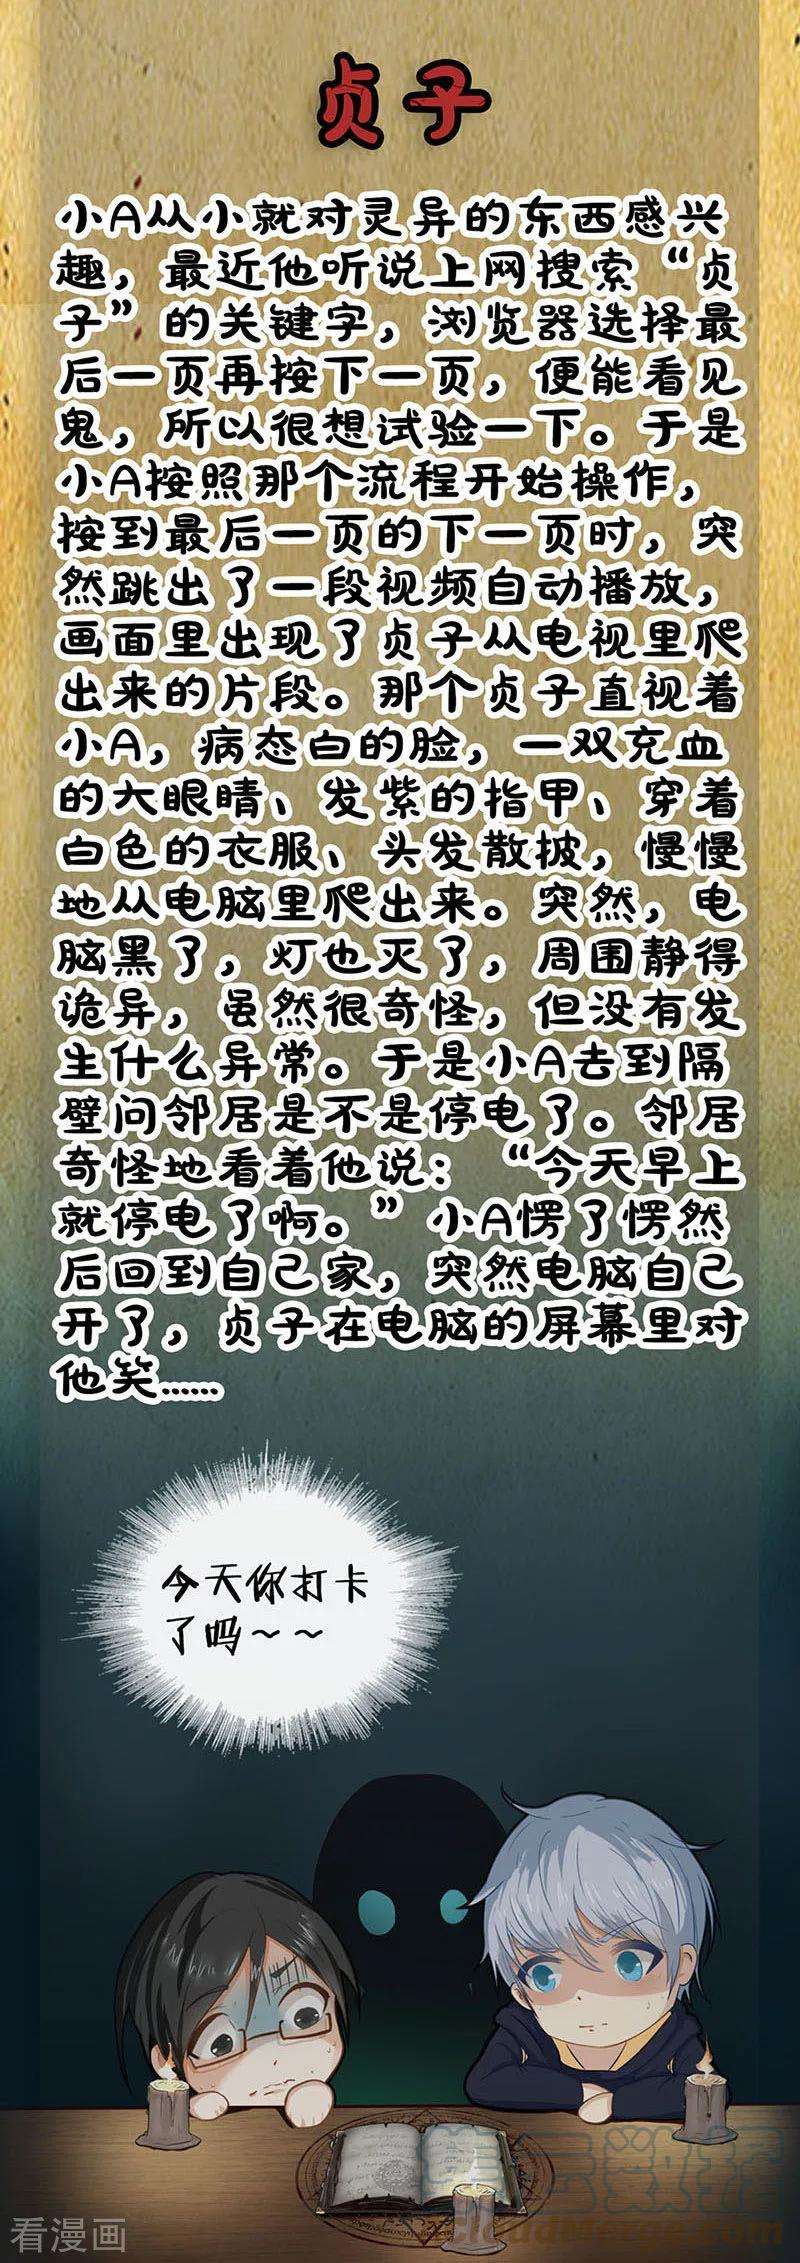 贞子
小A从小就对灵异的东西感兴
趣，最近他听说上网搜索“贞
子”的关键字，浏览器选择最
后一页再按下一页，便能看见
鬼，所以很想试验一下。于是
小A按照那个流程开始操作，
按到最后一页的下一页时，突
然跳出了一段视频自动播放，
画面里出现了贞子从电视里爬
出来的片段。那个贞子直视着
小A，病态白的脸，一双充血
的大眼睛、发紫的指甲、穿着
白色的衣服、头发散披，慢慢
地从电脑里爬出来。突然，电
脑黑了，灯也灭了，周围静得
诡异，虽然很奇怪，但没有发
生什么异常。于是小A去到隔
壁问邻居是不是停电了。邻居
奇怪地看着他说：“今天早上
就停电了啊。”小A愣了愣然
后回到自己家，突然电脑自己
开了，贞子在电脑的屏幕里对
他笑……
今天你打卡
了吗～～
看漫画